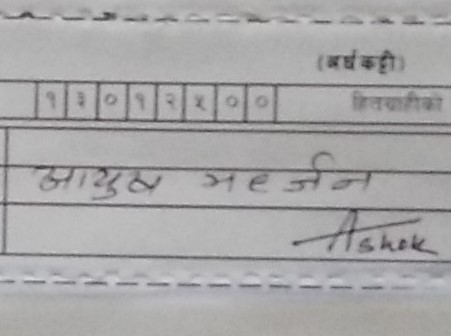 (अर्धकट्टी)
१३०१२५०० हितग्राहीको
आयुष महर्जन
Ashok